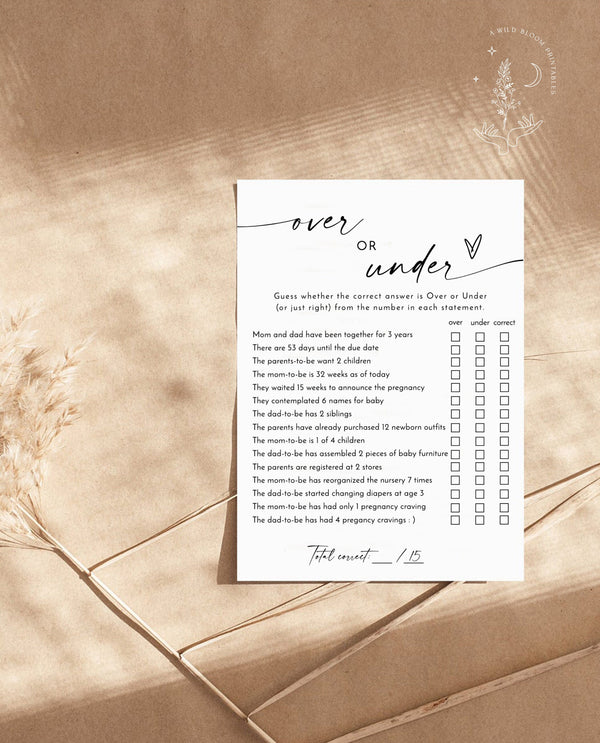 A WILD BLOOM PRINTABLES
over
OR
under
Guess whether the correct answer is Over or Under
(or just right) from the number in each statement.
over under correct
Mom and dad have been together for 3 years
There are 53 days until the due date
The parents-to-be want 2 children
The mom-to-be is 32 weeks as of today
They waited 15 weeks to announce the pregnancy
They contemplated 6 names for baby
The dad-to-be has 2 siblings
The parents have already purchased 12 newborn outfits
The mom-to-be is 1 of 4 children
The dad-to-be has assembled 2 pieces of baby furniture
The parents are registered at 2 stores
The mom-to-be has reorganized the nursery 7 times
The dad-to-be started changing diapers at age 3
The mom-to-be has had only 1 pregnancy craving
The dad-to-be has had 4 pregancy cravings : )
Total correct: __ / 15